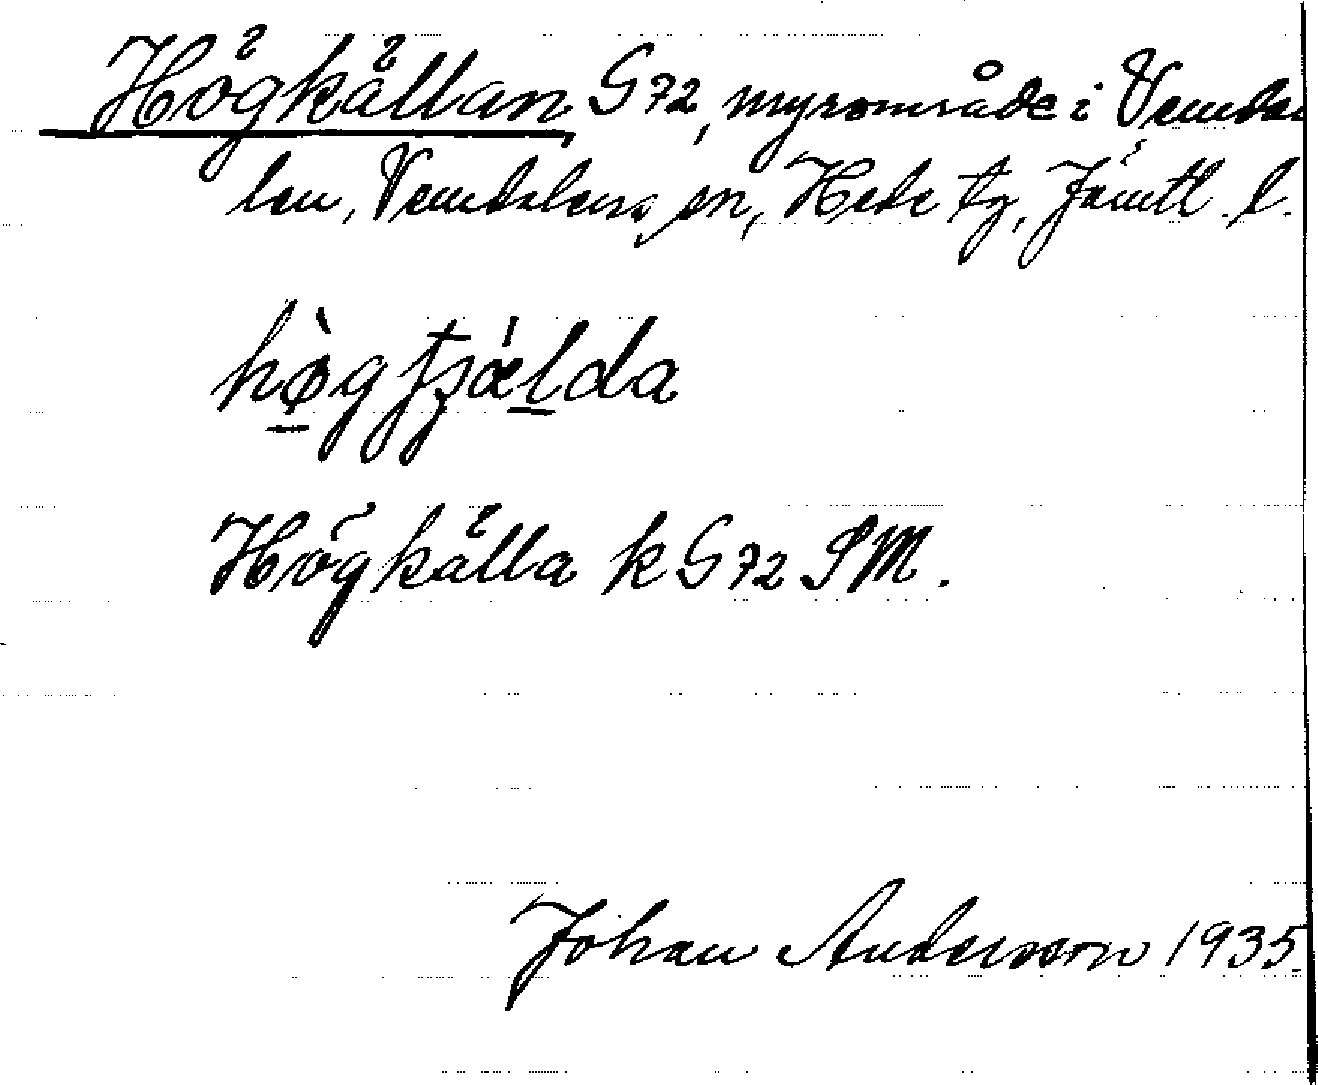 Högkällan, G72, myrområde i Vemda
len, Vemdalens sn, Hede tg, Jämtl. l.
hø̀gfʒǽlda
Högkälla k G72 SM.
Johan Andersson 1935.